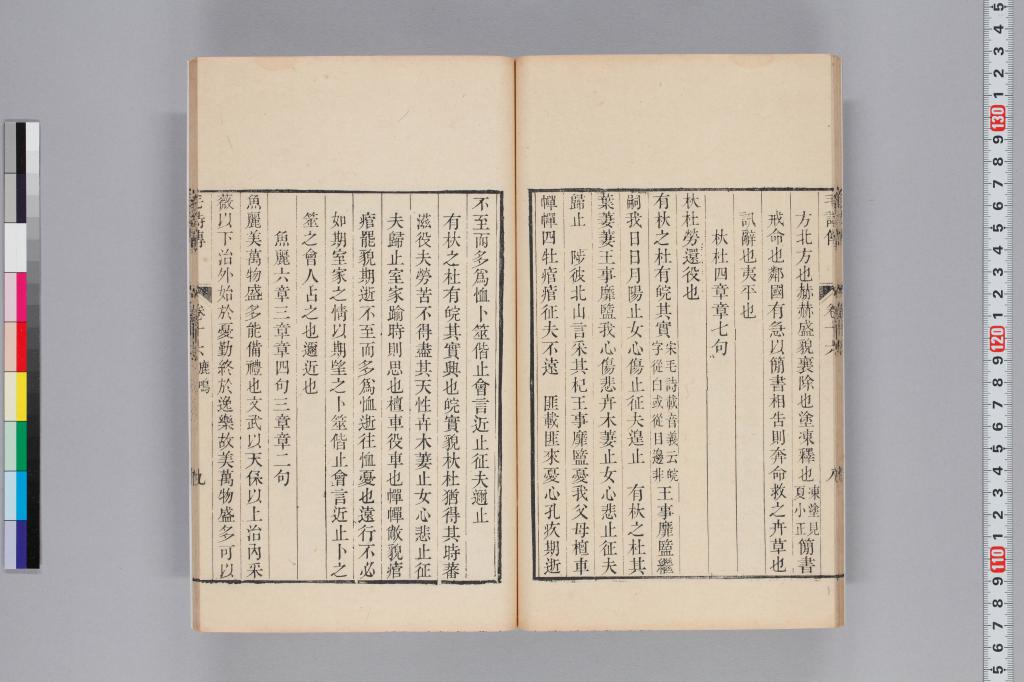 方北方也赫赫盛貌襄除也塗凍釋也凍塗見夏小正簡書
戒命也鄰國有急以簡書相告則奔命救之卉草也
訊辭也夷平也
杕杜四章章七句
杕杜勞還役也
有杕之杜有睆其實宋毛詩載音義云睆字從白或從目邊非王事靡盬繼
嗣我日日月陽止女心傷止征夫遑止　有杕之杜其
葉萋萋王事靡盬我心傷悲卉木萋止女心悲止征夫
歸止　陟彼北山言采其杞王事靡盬憂我父母檀車
幝幝四牡痯痯征夫不遠　匪載匪來憂心孔疚期逝
不至而多為恤卜筮偕止會言近止征夫邇止
有杕之杜有睆其實興也睆實貌杕杜猶得其時蕃
滋役夫勞苦不得盡其天性卉木萋止女心悲止征
夫歸止室家踰時則思也檀車役車也幝幝敝貌痯
痯罷貌期逝不至而多為恤逝往恤憂也遠行不必
如期室家之情以期望之卜筮偕止會言近止卜之
筮之會人占之也邇近也
魚麗六章三章章四句三章章二句
魚麗美萬物盛多能備禮也文武以天保以上治內采
薇以下治外始於憂勤終於逸樂故美萬物盛多可以
毛詩傳　卷十六　鹿鳴　九